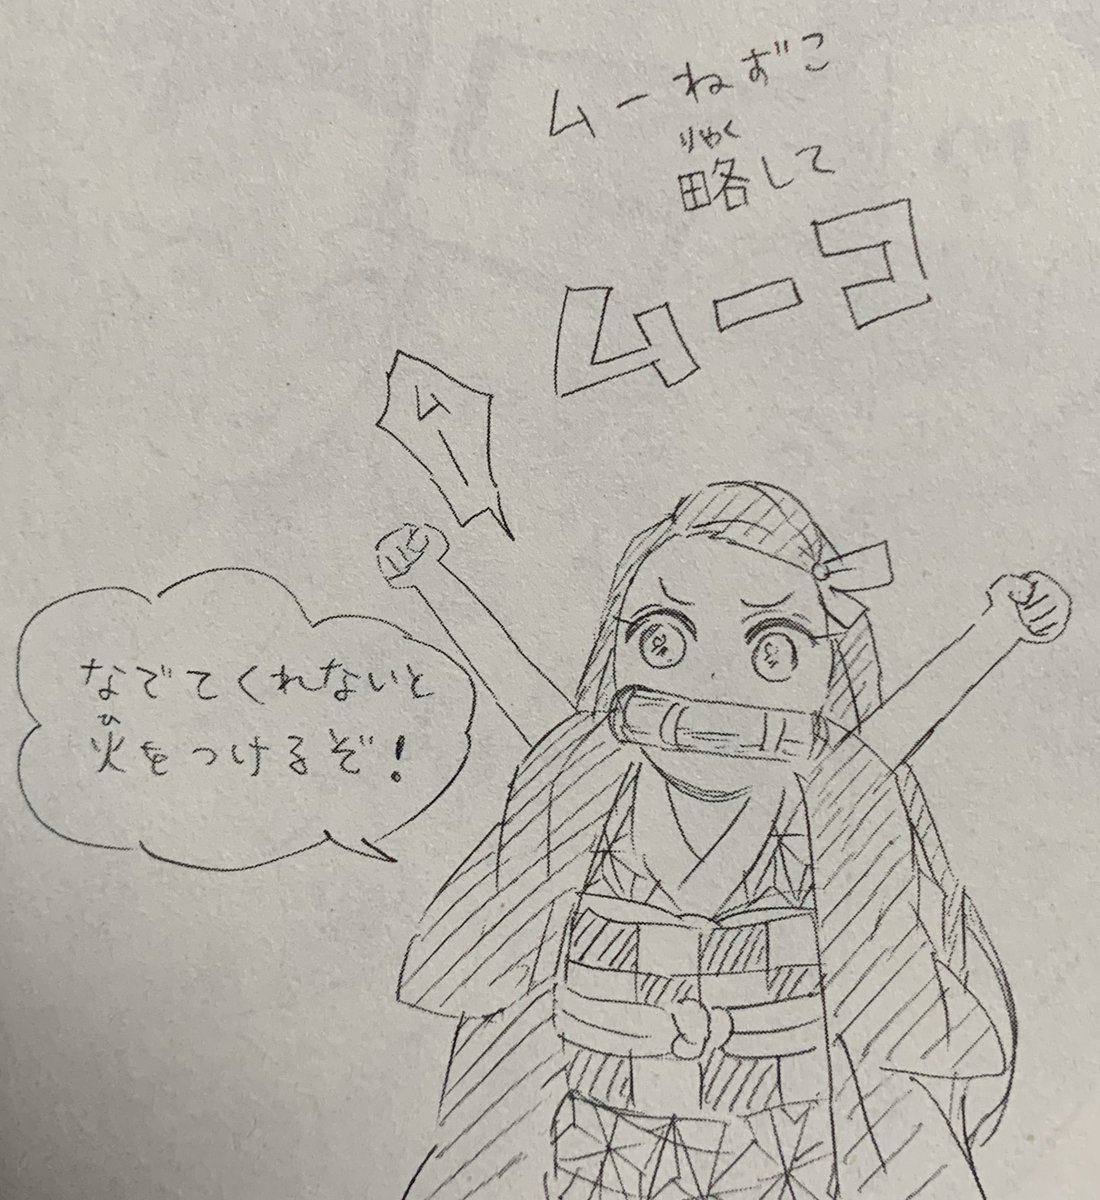 ムーねずこ
りゃく
略して
ムーコ
ムー
なでてくれないと
ひ
火をつけるぞ!